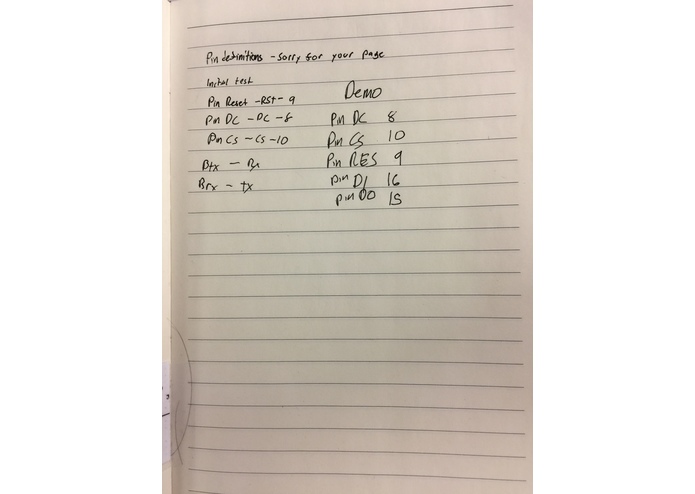 Pin definitions - sorry for your page
Initial test
Pin Reset - RST - 9
Pin DC - DC - 8
Pin CS - CS - 10
Btx - Rx
Brx - tx
Demo
Pin DC 8
Pin CS 10
Pin RES 9
Pin DI 16
Pin DO 15